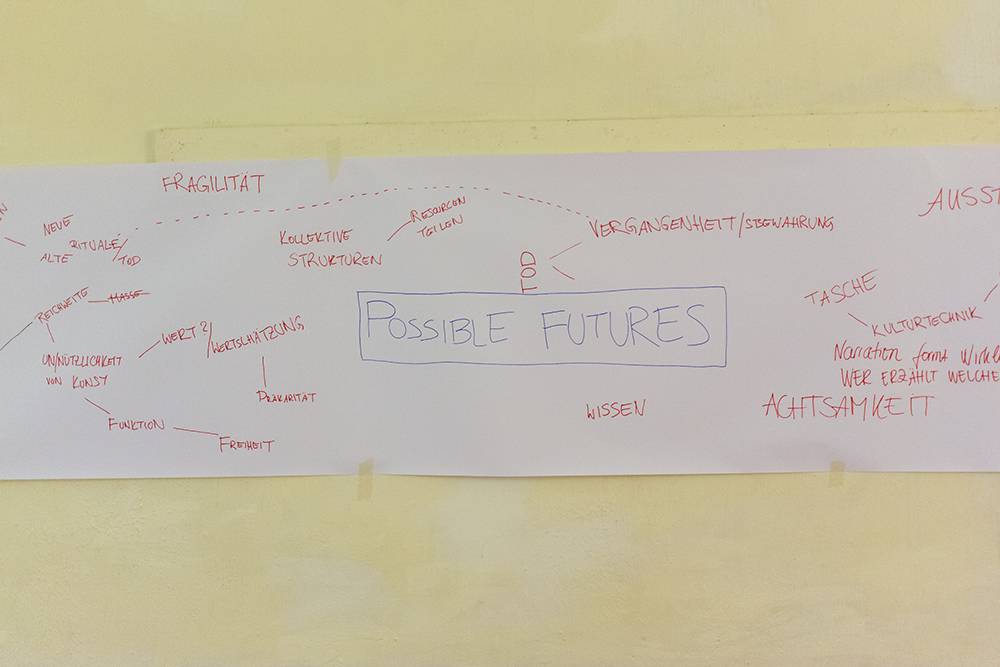 FRAGILITÄT
NEUE
ALTE RITUALE/
TOD
REICHWEITE
MASSE
UN/NÜTZLICHKEIT
VON KUNST
WERT?/WERTSHÄTZUNG
PRÄKARITÄT
FUNKTION
FREIHEIT
KOLLEKTIVE
STRUKTUREN
RESOURCEN
TEILEN
TOD
VERGANGENHEIT/SBEWAHRUNG
POSSIBLE FUTURES
WISSEN
AUSST
TASCHE
KULTURTECHNIK
Narration formt Wirkl
WER ERZÄHLT WELCHE
ACHTSAMKEIT